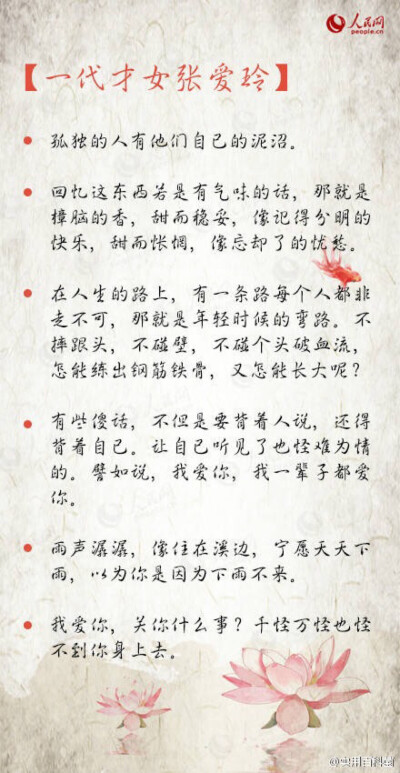 人民网
people.cn
【一代才女张爱玲】
孤独的人有他们自己的泥沼。
回忆这东西若是有气味的话，那就是
樟脑的香，甜而稳妥，像记得分明的
快乐，甜而怅惘，像忘却了的忧愁。
在人生的路上，有一条路每个人都非
走不可，那就是年轻时候的弯路。不
摔跟头，不碰壁，不碰个头破血流，
怎能练出钢筋铁骨，又怎能长大呢？
有些傻话，不但是要背着人说，还得
背着自己。让自己听见了也怪难为情
的。譬如说，我爱你，我一辈子都爱
你。
雨声潺潺，像住在溪边，宁愿天天下
雨，以为你是因为下雨不来。
我爱你，关你什么事？千怪万怪也怪
不到你身上去。